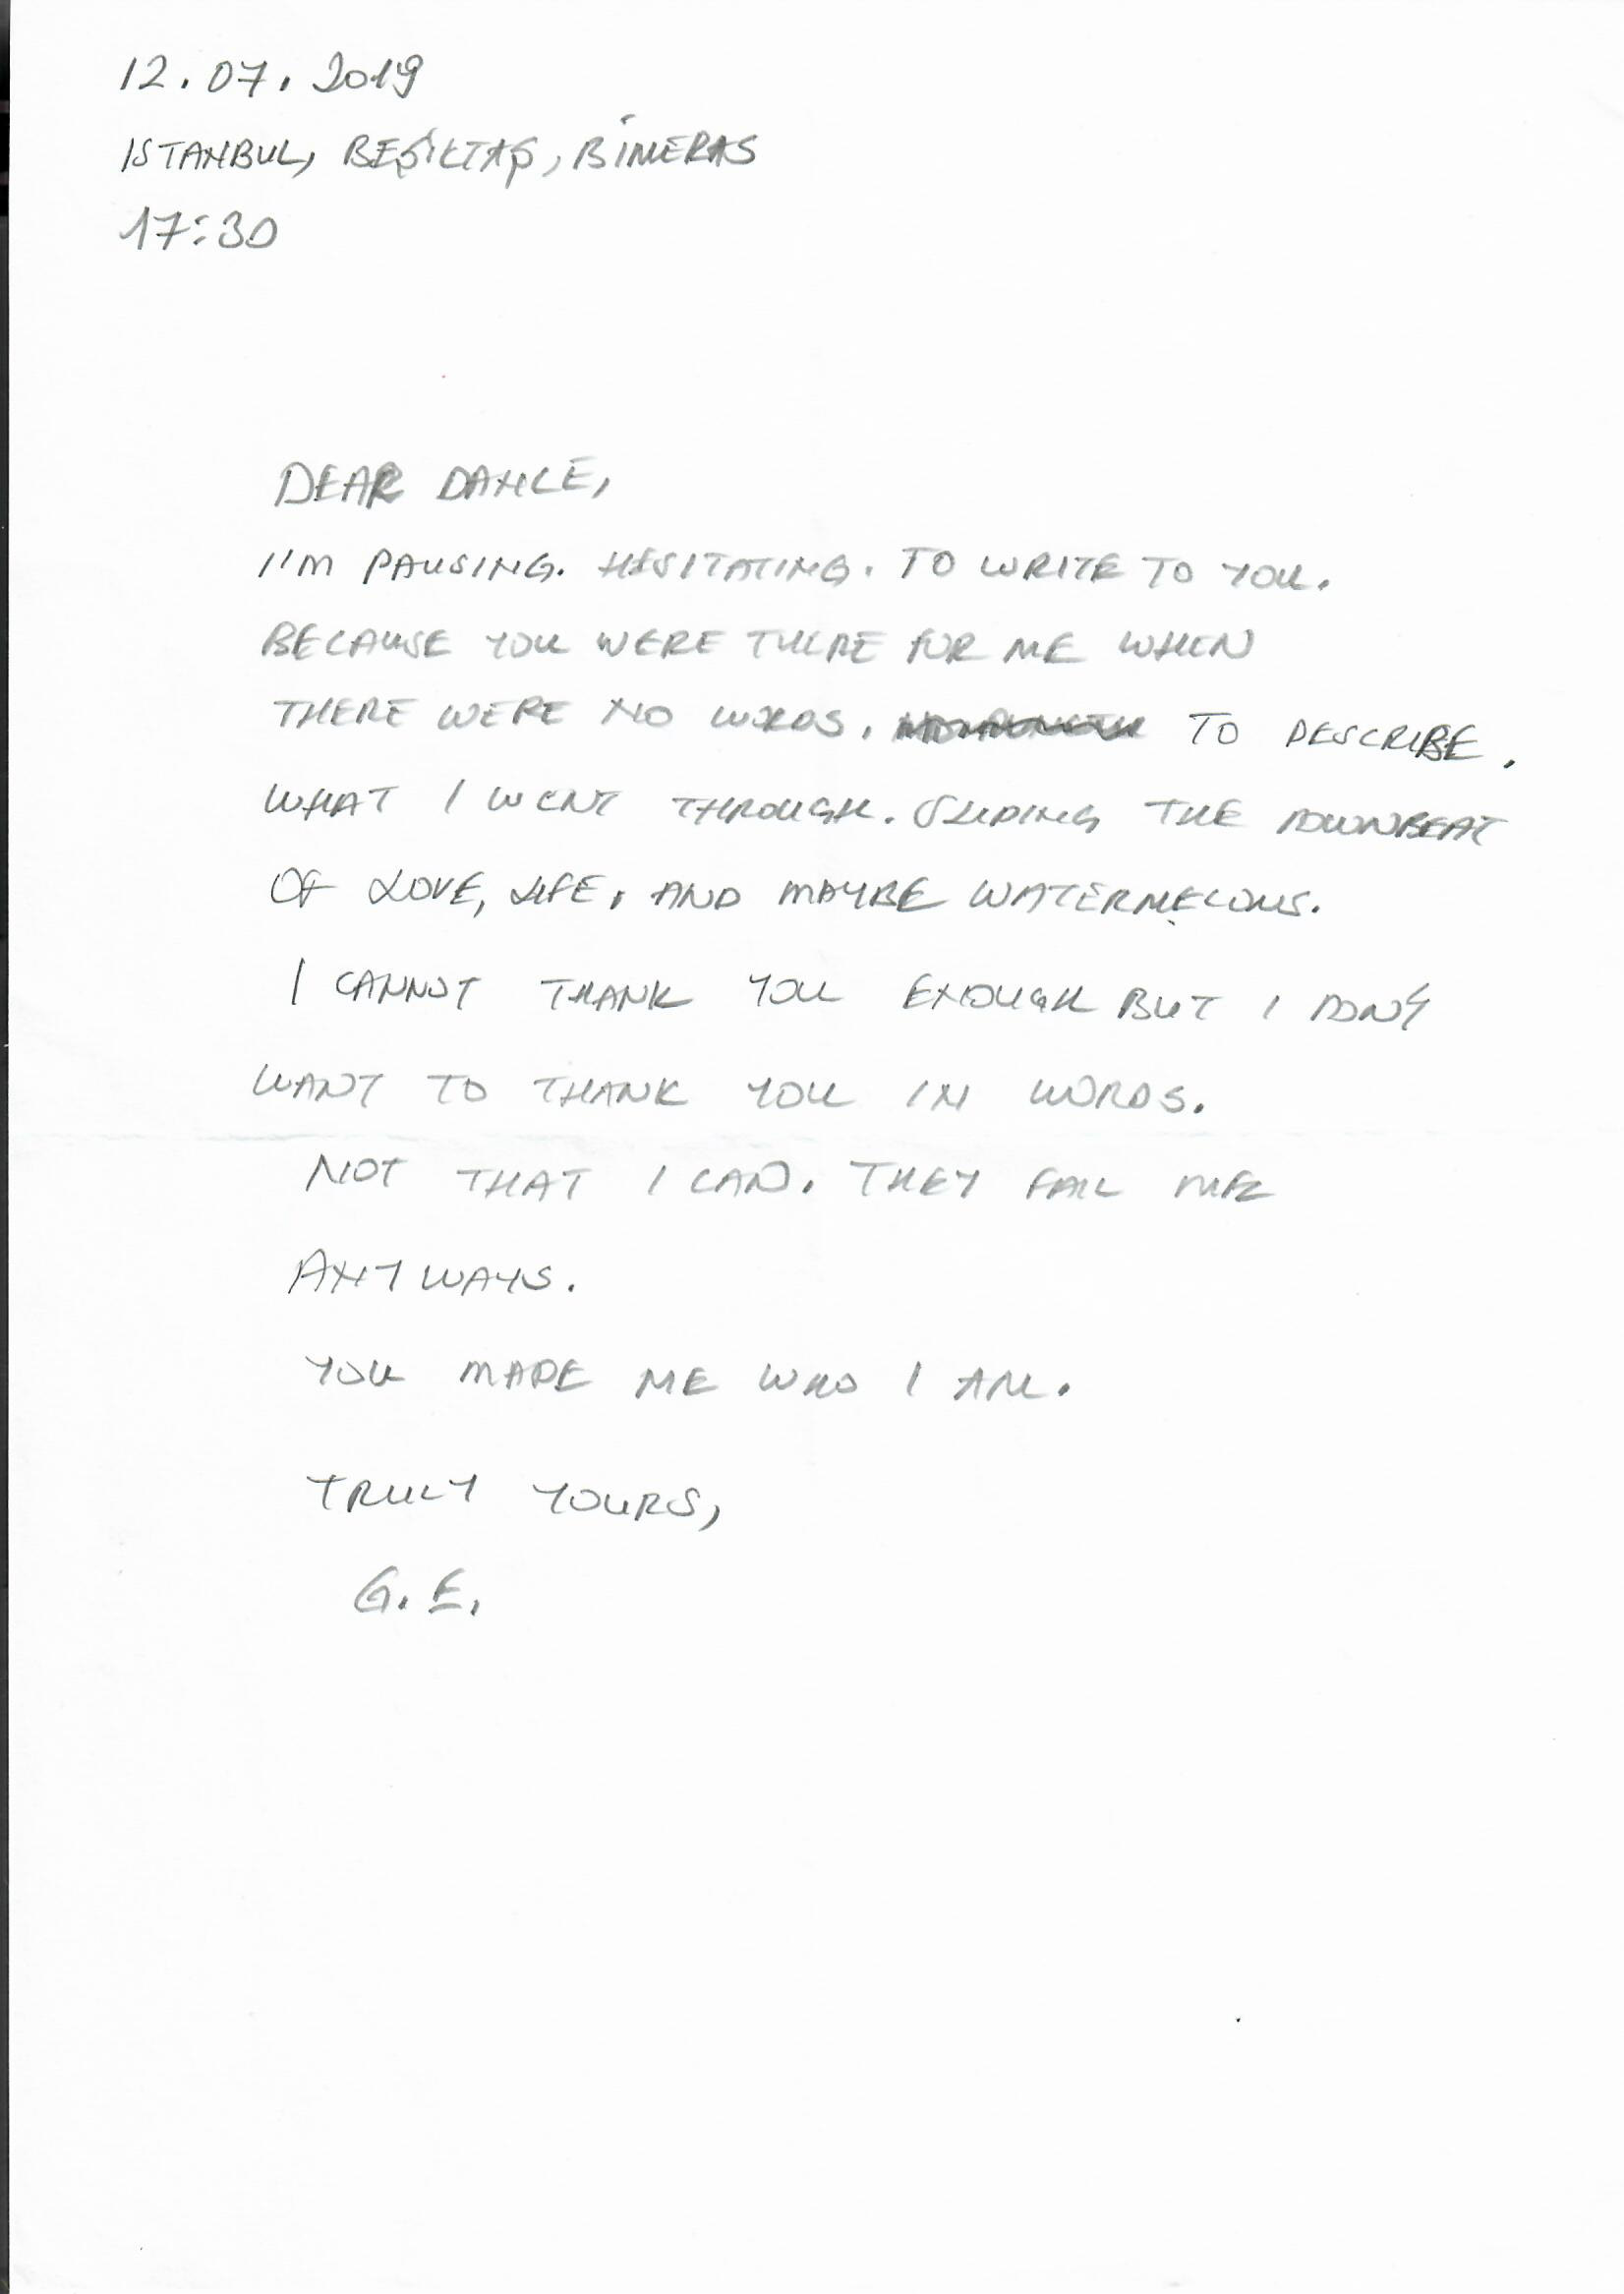 12.07.2019
ISTANBUL, BEŞİKTAŞ, BİMERAS
17:30
DEAR DANCE,
I'M PAUSING. HESITATING. TO WRITE TO YOU.
BECAUSE YOU WERE THERE FOR ME WHEN
THERE WERE NO WORDS. TO DESCRIBE.
WHAT I WENT THROUGH. SLIDING THE DOWNBEAT
OF LOVE, LIFE, AND MAYBE WATERMELONS.
I CANNOT THANK YOU ENOUGH BUT I DON'T
WANT TO THANK YOU IN WORDS.
NOT THAT I CAN. THEY FAIL ME
ANYWAYS.
YOU MADE ME WHO I AM.
TRULY YOURS,
G.E.